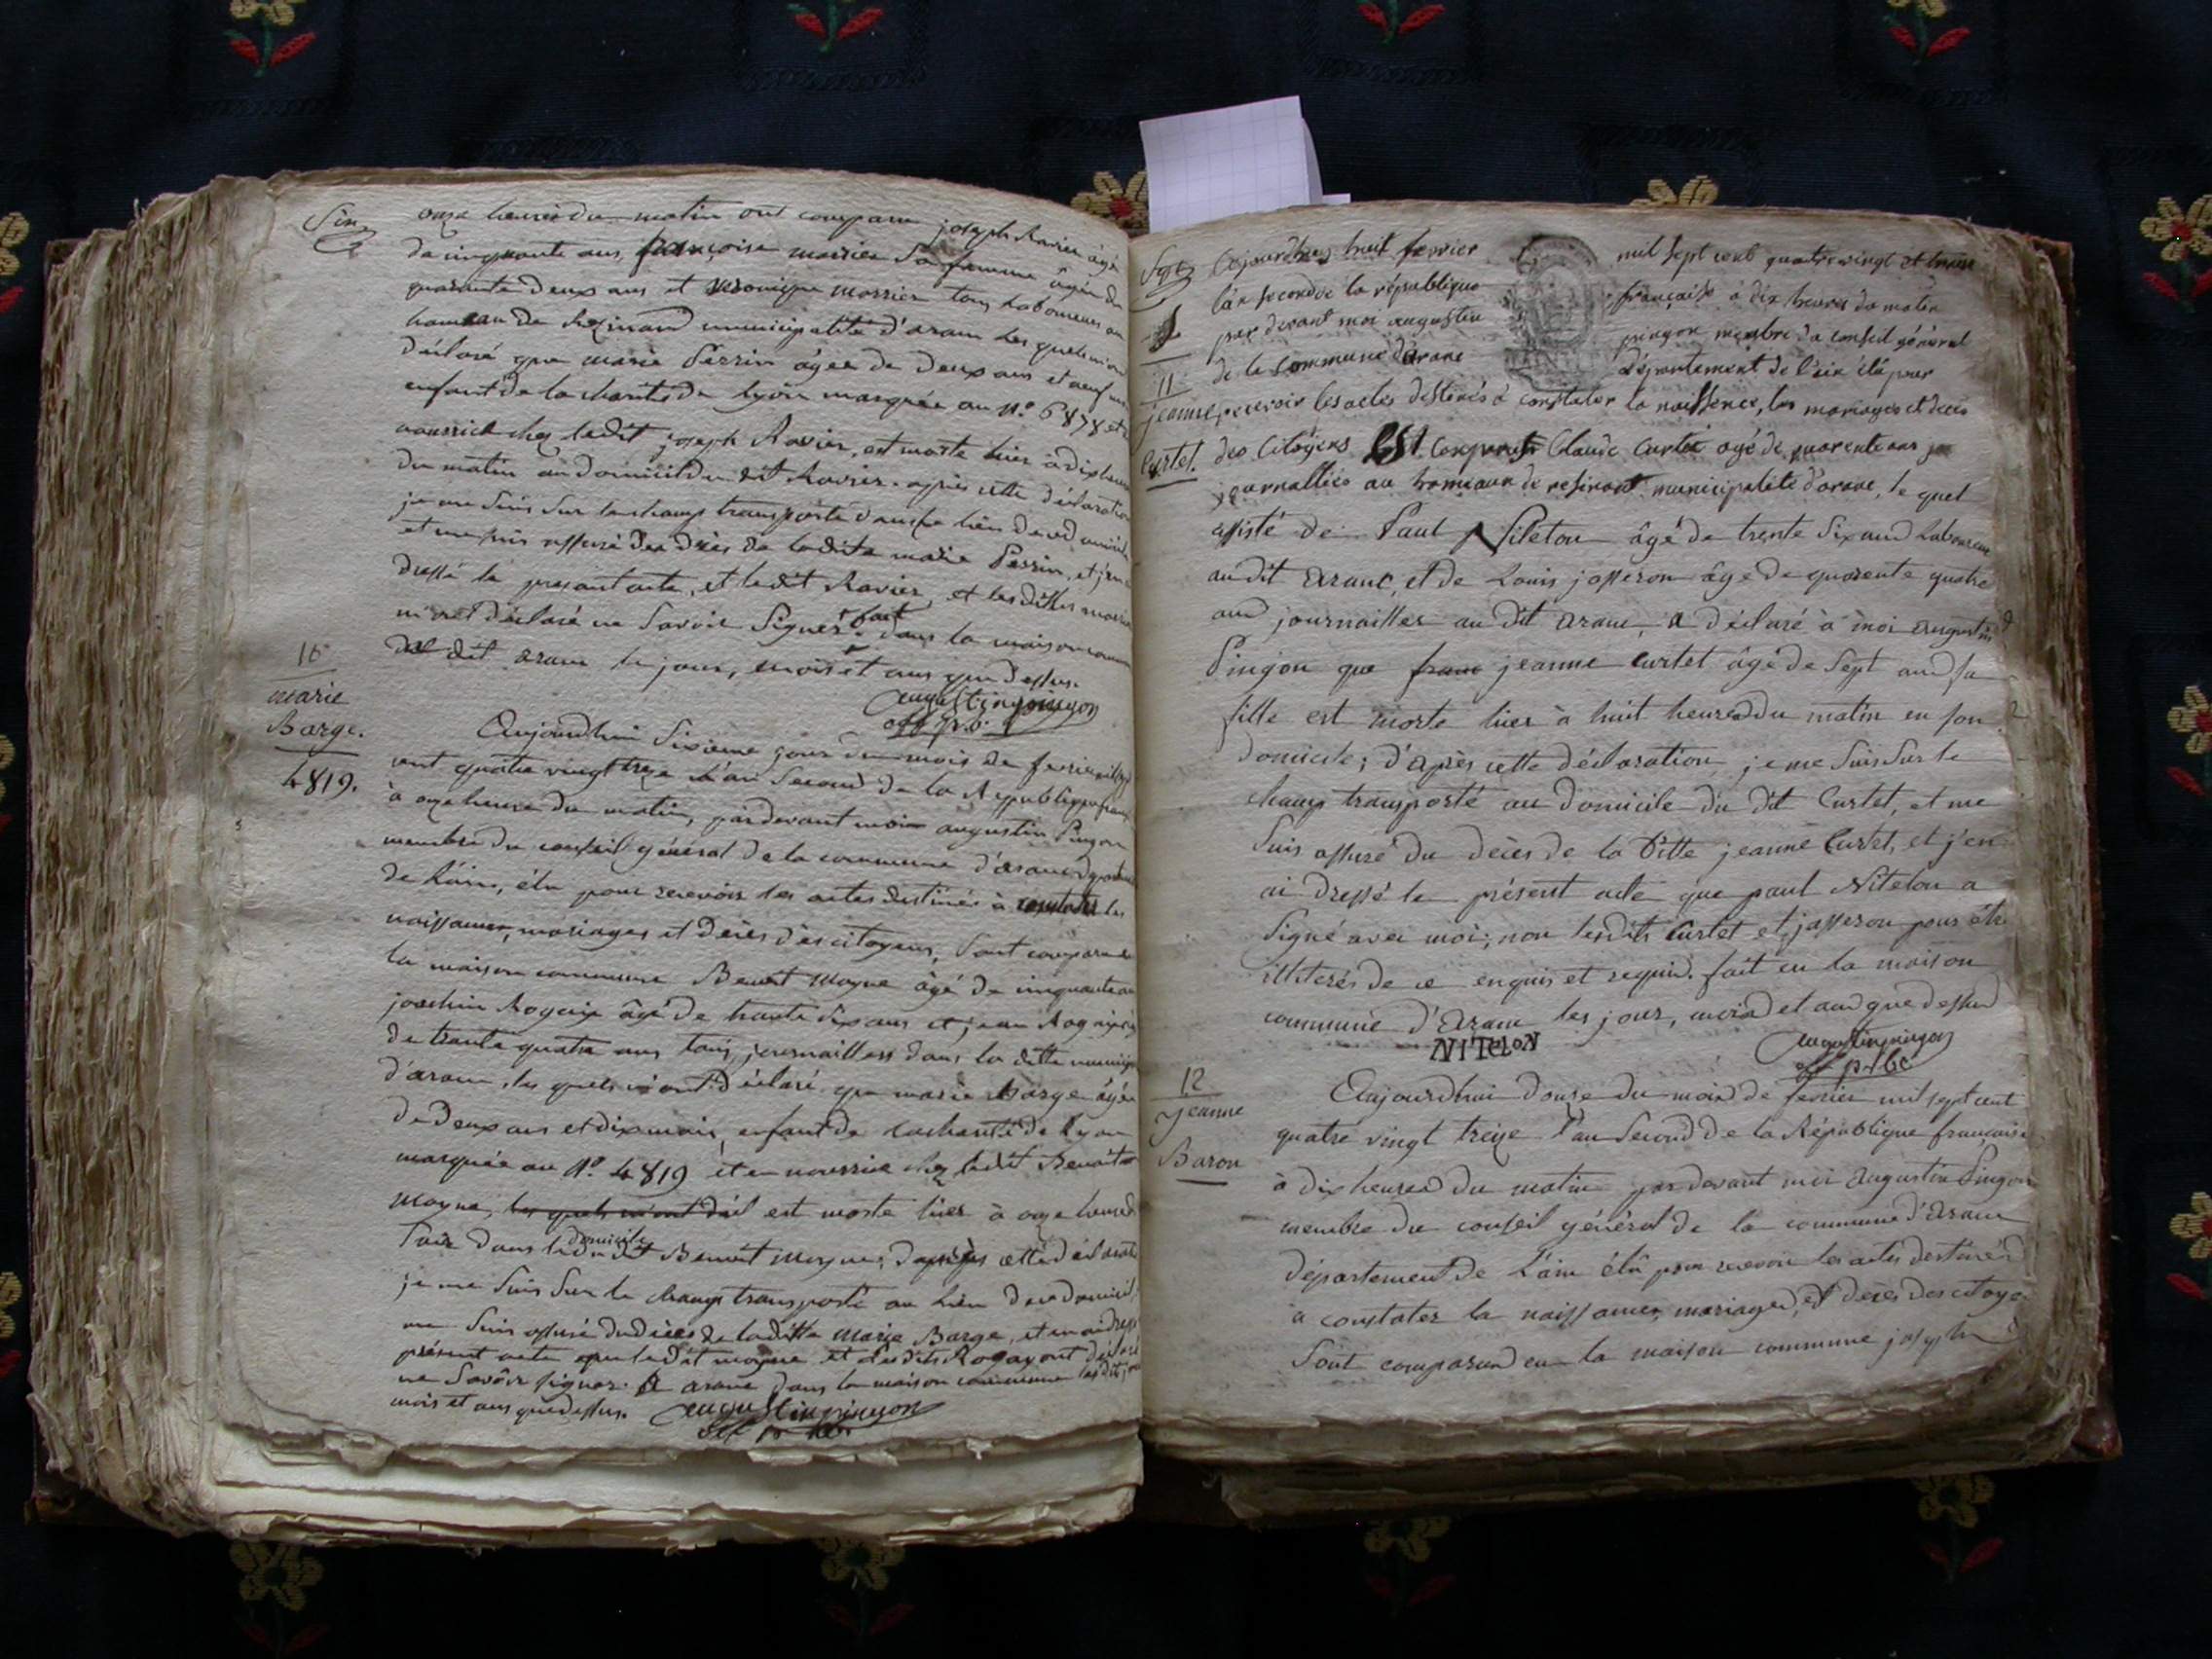 Six
onze heures du matin ont comparu joseph Ravier âgé
de cinquante ans, françoise morrier Sa femme âgée de
quarante deux ans et veronique morrier tous Laboureurs au
hameau de Rezinand municipalité d'aranc Les quels m'ont
déclaré que marie Perrin âgée de deux ans et neuf
enfant de la charité de Lyon marquée au N.º 6878 et
nourrie chez ledit joseph Ravier, est morte hier à dix heures
du matin au domicile du dit Ravier. après cette déclaration
je me suis Sur le champ transporté dans le lieu de ce domicile
et me suis assuré du décès de ladite marie Perrin, et j'en
dressé le présent acte, et ledit Ravier, et lesdittes
m'ont déclaré ne Savoir Signer. fait dans la maison
du dit aranc le jour, mois et ans que dessus.
augustin pingon
off. p.b.
10
marie
Barge.
4819.
Aujourd'hui Sixième jour du mois de fevrier
cent quatre vingt treze L'an Second de la Republique
à onze heures du matin, par devant moi augustin Pingon
membre du conseil général de la commune d'aranc
de L'ain, élu pour recevoir les actes destinés à constater les
naissances, mariages et décès des citoyens, Sont comparu
la maison commune Benoit Moyne âgé de cinquante
joachim Rogaix âgé de trante Six ans et jean
de trante quatre ans tous journaillers dans la ditte
d'aranc, les quels m'ont déclaré que marie Barge âgée
de Deux ans et dix mois, enfant de La charité de Lyon
marquée au N.º 4819 et en nourrice chez ledit Benoit
Moyne, les quels m'ont d'éil est morte hier à onze heures
Soir dans le domicile du dit Benoit Moyne; d'après cette déclarati
je me Suis Sur le champ transporté au Lieu de ce domicil
me Suis assuré du décès de laditte Marie Barge, et en ai
présent acte que ledit moyne et Lesdits ont déclaré
ne Savoir signer. à aranc dans la maison commune
mois et ans que dessus. augustin pingon
off p
Sept
11
jeanne
Curtet.
Aujourdhuy huit fevrier mil sept cent quatrevingt et treize
l'an second de la république française à dix heures du matin
par devant moi augustin pingon membre du conseil général
de la commune d'arane département de l'ain élû pour
recevoir les actes destinés à constater la naissence, les mariages et décès
des Citoyens Est comparut Claude Curtet agé de quarente ans
journallier au homeaux de resinant municipalité d'arane, le quel
assisté de Paul Niteton âgé de trente Six ans Laboureur
au dit aranc, et de Louis josseron âge de quarente quatre
ans journailler au dit aranc, a déclaré à moi augustin
Pingon que jeanne Curtet âgé de Sept ans sa
fille est morte hier à huit heures du matin en son
domicile; d'après cette déclaration, je me Suis Sur le
champ transporté au domicile du dit Curtet, et me
Suis assuré du decès de la Ditte jeanne Curtet, et j'en
ai dressé le présent acte que paul Niteton a
Signé avec moi; non lesdits Curtet et josseron pour être
illiterés de ce enquis et requis. fait en la maison
commune d'Aranc les jour, mois et ans que dessus
NITeLoN augustin pingon
off p-bc
12
Jeanne
Baron
Aujourdhui douze du mois de fevrier mil sept cent
quatre vingt treize l'an Second de la République française
à dix heures du matin par devant moi Augustin Pingon
membre du conseil général de la commune d'Aranc
département de L'ain élû pour recevoir les actes destinés
à constater la naissances, mariages, et décès des citoye
Sont comparus en la maison commune joseph